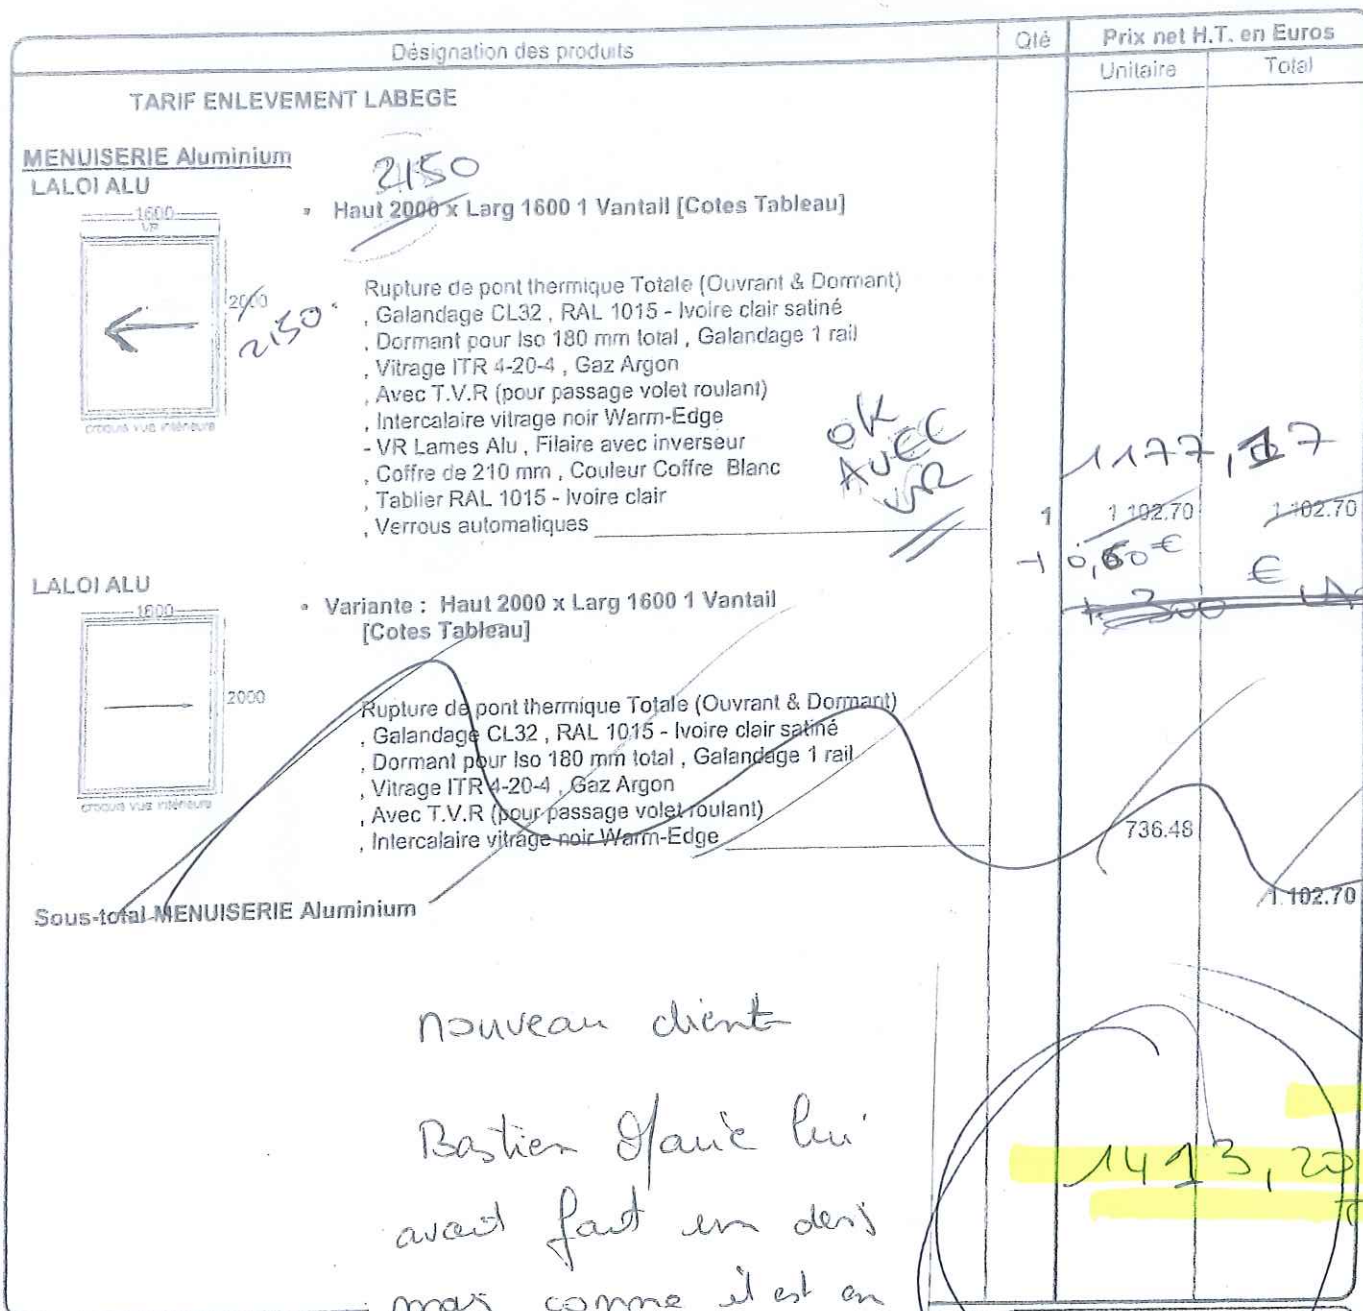 Désignation des produits
Qté
Prix net H.T. en Euros
Unitaire
Total
TARIF ENLEVEMENT LABEGE
MENUISERIE Aluminium
LALOI ALU
2150
1600
VR
2000
2150
croquis vue intérieure
• Haut 2000 x Larg 1600 1 Vantail [Cotes Tableau]
Rupture de pont thermique Totale (Ouvrant & Dormant)
, Galandage CL32 , RAL 1015 - Ivoire clair satiné
, Dormant pour Iso 180 mm total , Galandage 1 rail
, Vitrage ITR 4-20-4 , Gaz Argon
, Avec T.V.R (pour passage volet roulant)
, Intercalaire vitrage noir Warm-Edge
- VR Lames Alu , Filaire avec inverseur
, Coffre de 210 mm , Couleur Coffre Blanc
, Tablier RAL 1015 - Ivoire clair
, Verrous automatiques
OK
AVEC
VR
1177,17
1 1 102.70 1 102.70
0,60 €
+ 300 €
LALOI ALU
1600
2000
croquis vue intérieure
• Variante : Haut 2000 x Larg 1600 1 Vantail
[Cotes Tableau]
Rupture de pont thermique Totale (Ouvrant & Dormant)
, Galandage CL32 , RAL 1015 - Ivoire clair satiné
, Dormant pour Iso 180 mm total , Galandage 1 rail
, Vitrage ITR 4-20-4 , Gaz Argon
, Avec T.V.R (pour passage volet roulant)
, Intercalaire vitrage noir Warm-Edge
736.48
Sous-total MENUISERIE Aluminium
1 102.70
nouveau client
Bastien lui
avait fait un devis
mais comme il est en
1413,20